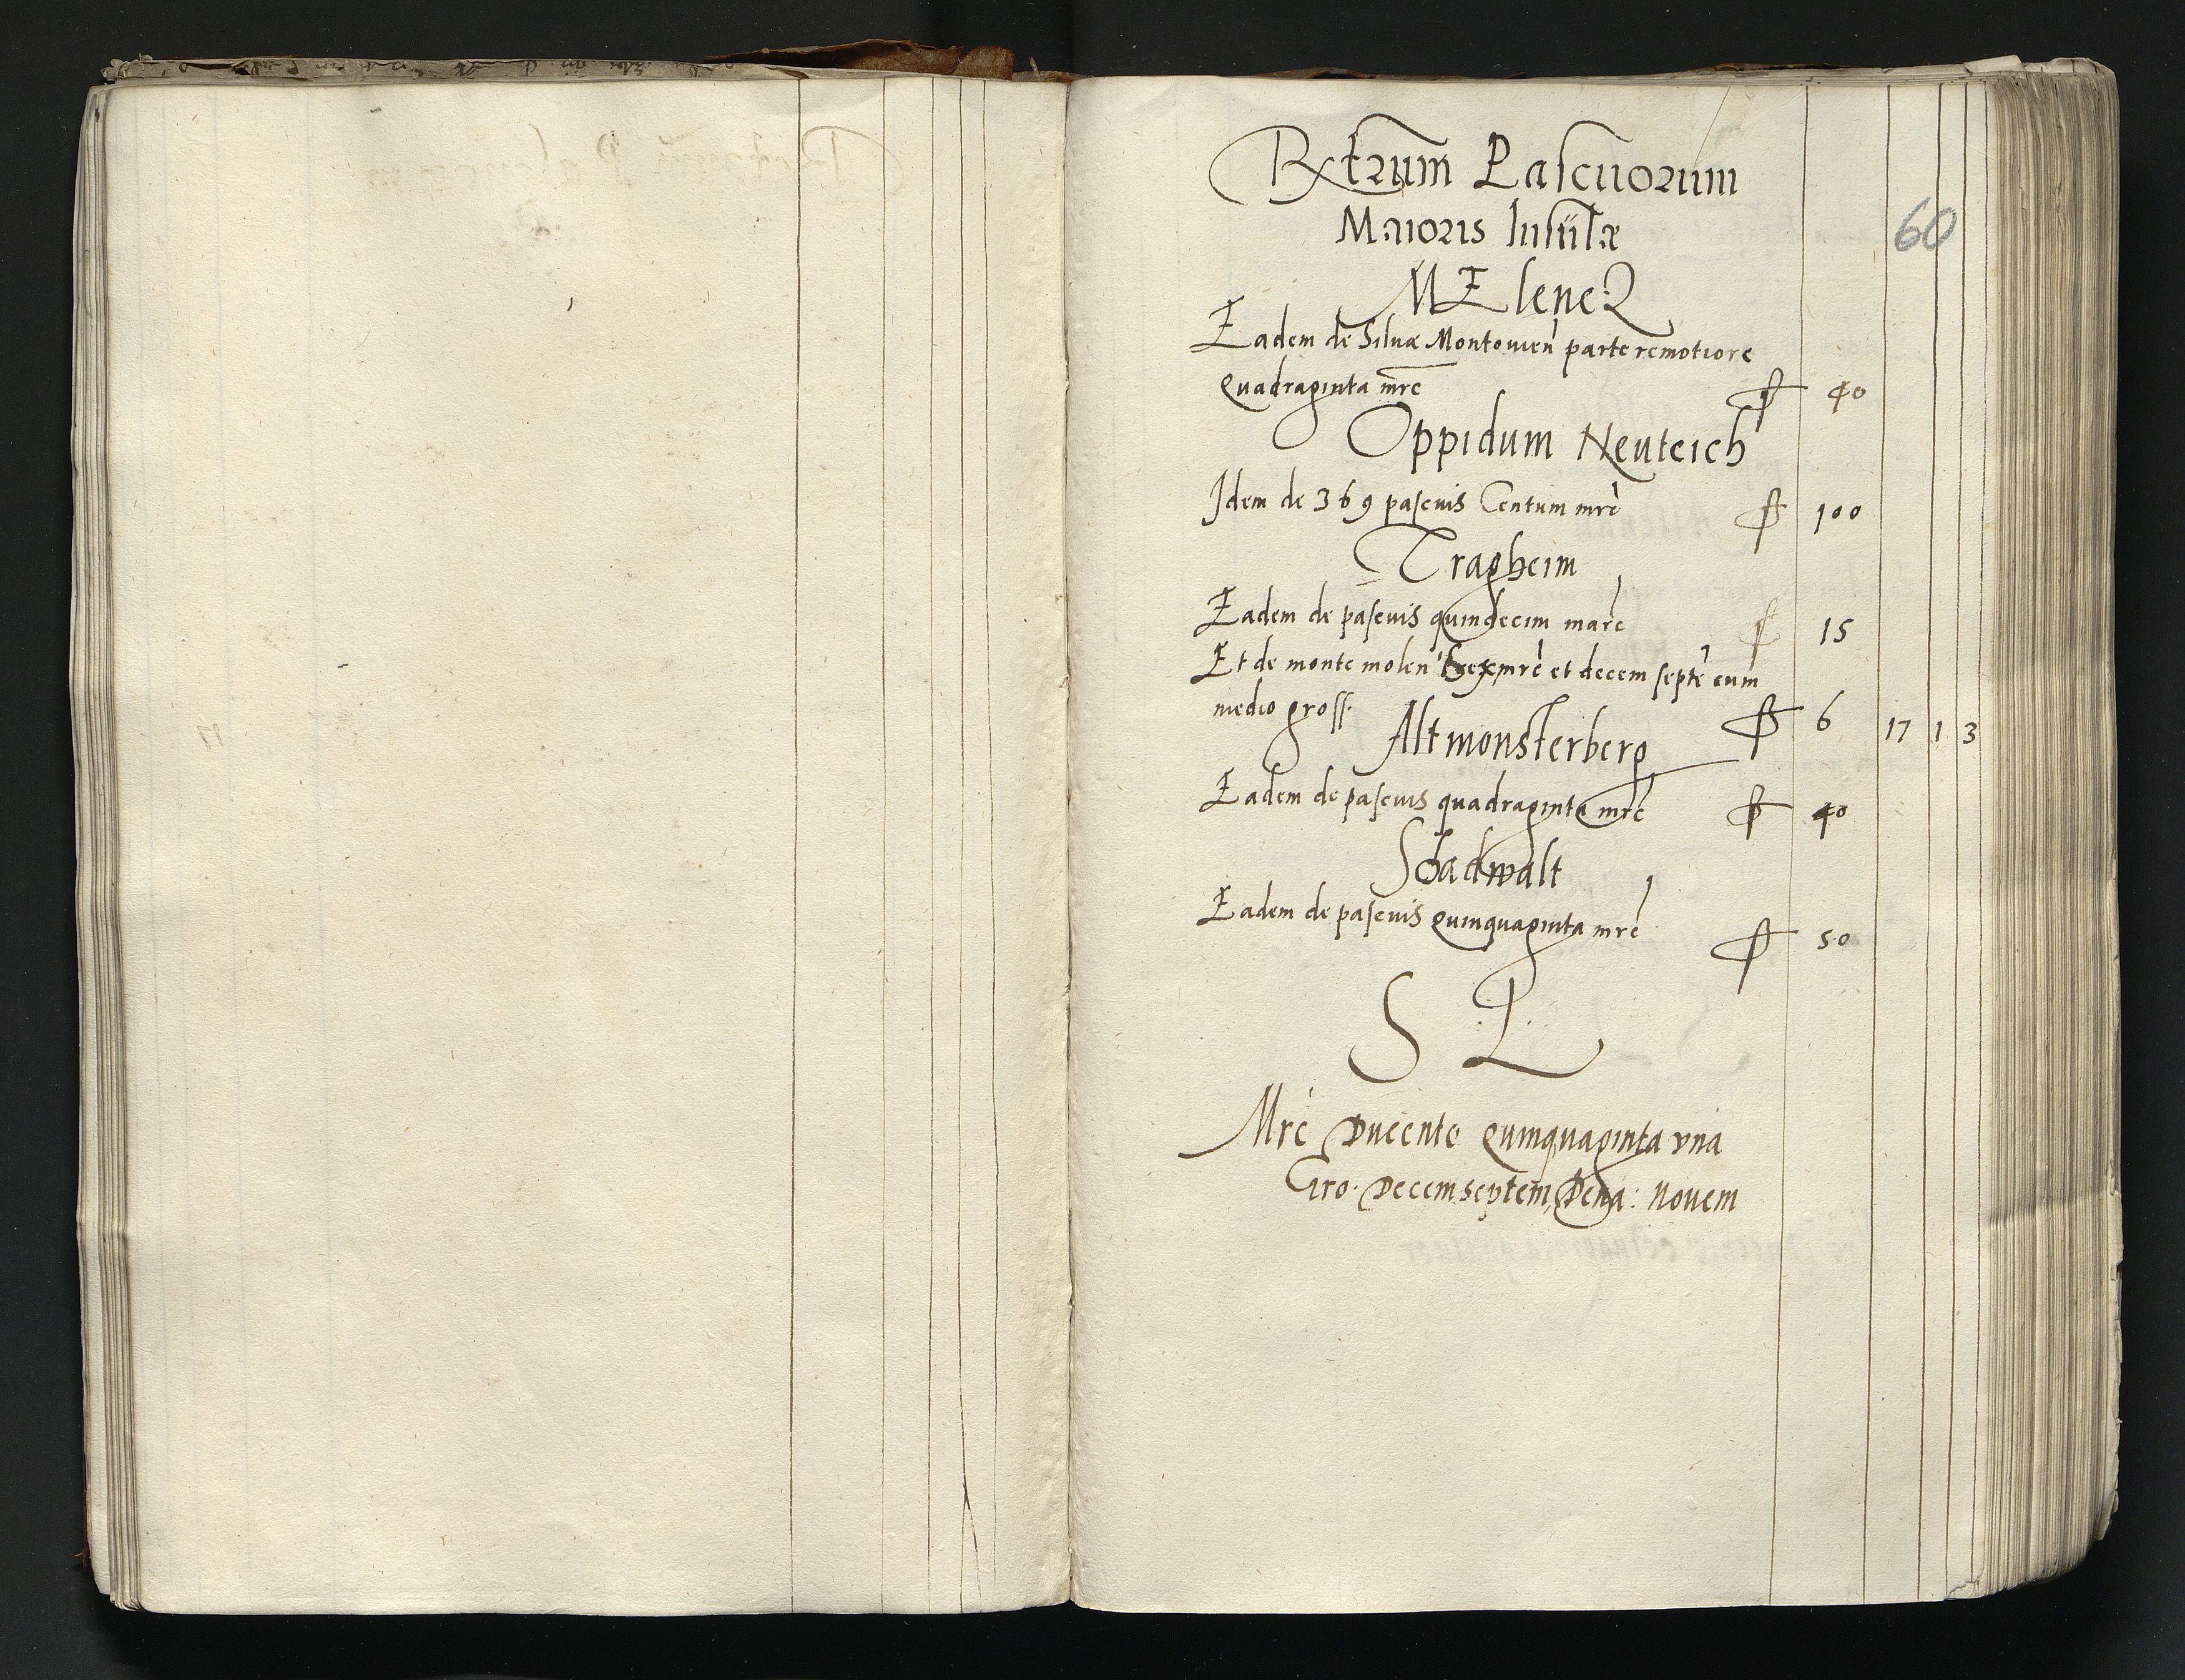 Rxtrum Pascuorum
Maioris Insulæ
60
MElene
Eadem de Siluæ Montouien parte remotiore
Quadraginta mrc 40
Oppidum Neuteich
Idem de 369 pascuis Centum mrc 100
Tragheim
Eadem de pascuis quindecim marc 15
Et de monte molen sex mrc et decem septe cum
medio gross. 6 17 1 3
Altmonsterberg
Eadem de pascuis quadraginta mrc 40
Schadwalt
Eadem de pascuis Quinquaginta mrc 50
S P
Mrc Ducente Quinquaginta vna
Gro. Decemseptem, Dena: Novem